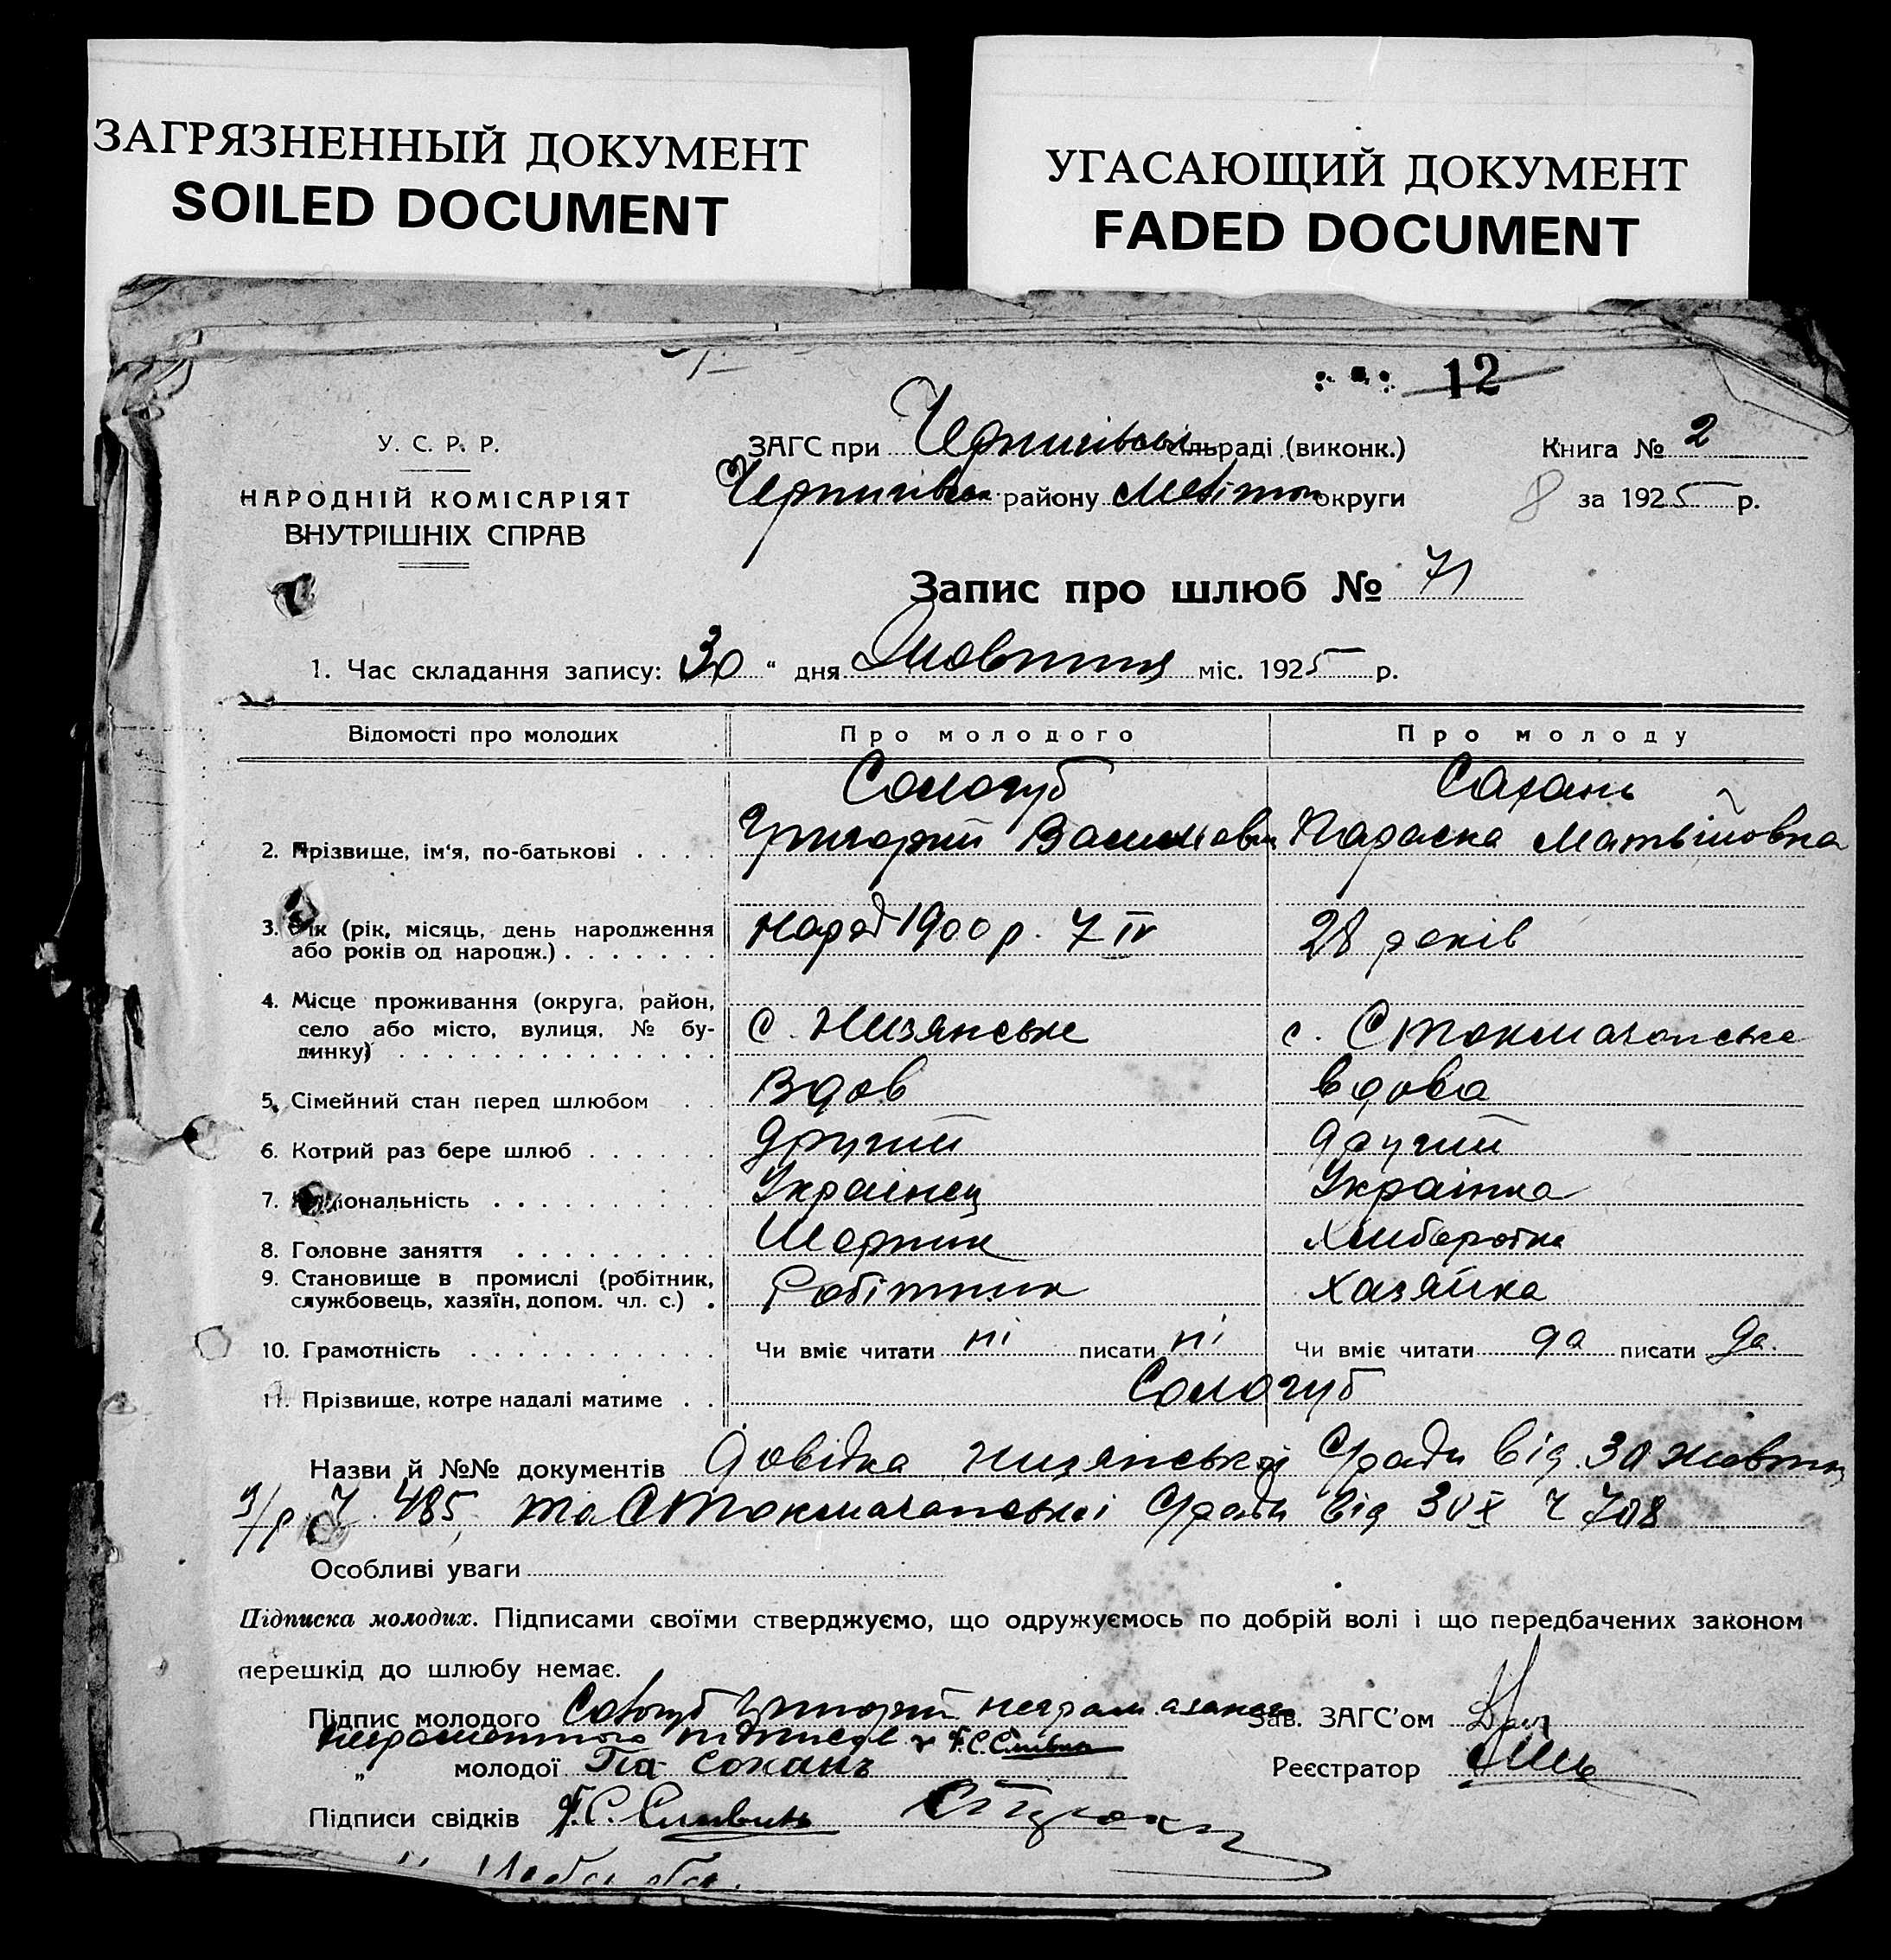 ЗАГРЯЗНЕННЫЙ ДОКУМЕНТ
SOILED DOCUMENT
УГАСАЮЩИЙ ДОКУМЕНТ
FADED DOCUMENT
12
У. С. Р. Р.
НАРОДНІЙ КОМІСАРІЯТ
ВНУТРІШНІХ СПРАВ
ЗАГС при Чернигівській сільраді (виконк.)
Чернигівськ. району Мелітоп округи
Книга № 2
8 за 1925 р.
Запис про шлюб № 71
1. Час складання запису: 30 " дня Жовтня міс. 1925 р.
Відомості про молодих Про молодого Про молоду
Сологуб Сахань
2. Прізвище, ім'я, по-батькові . . . . Григорий Васильович Параска Матвійовна
3. Вік (рік, місяць, день народження
або років од народж.) . . . . . . . народ 1900 р. 7 IV 28 років
4. Місце проживання (округа, район,
село або місто, вулиця, № бу-
динку) . . . . . . . . . . . . . . . с. Низянське с. Стокмаганське
5. Сімейний стан перед шлюбом . . Вдов вдова
6. Котрий раз бере шлюб . . . . . . другий другий
7. Національність . . . . . . . . . . Українец Українка
8. Головне заняття . . . . . . . . . Шорник Хліборобка
9. Становище в промислі (робітник,
службовець, хазяїн, допом. чл. с.) . Робітник хазяйка
10. Грамотність . . . . . . . . . . . Чи вміє читати ні писати ні Чи вміє читати да писати да.
11. Прізвище, котре надалі матиме . . Сологуб
Назви й №№ документів довідка низянської С/ради від 30 жовтня
ц/р Ч. 485, та Стокмаганської С/ради від 30 X Ч 708
Особливі уваги
Підписка молодих. Підписами своїми стверджуємо, що одружуємось по добрій волі і що передбачених законом
перешкід до шлюбу немає.
Підпис молодого Сологуб Григорій неграм Зав. ЗАГС'ом
неграмотного підписав Г.С. Сливин
" молодої Па Сохань Реєстратор
Підписи свідків Г.С. Сливин